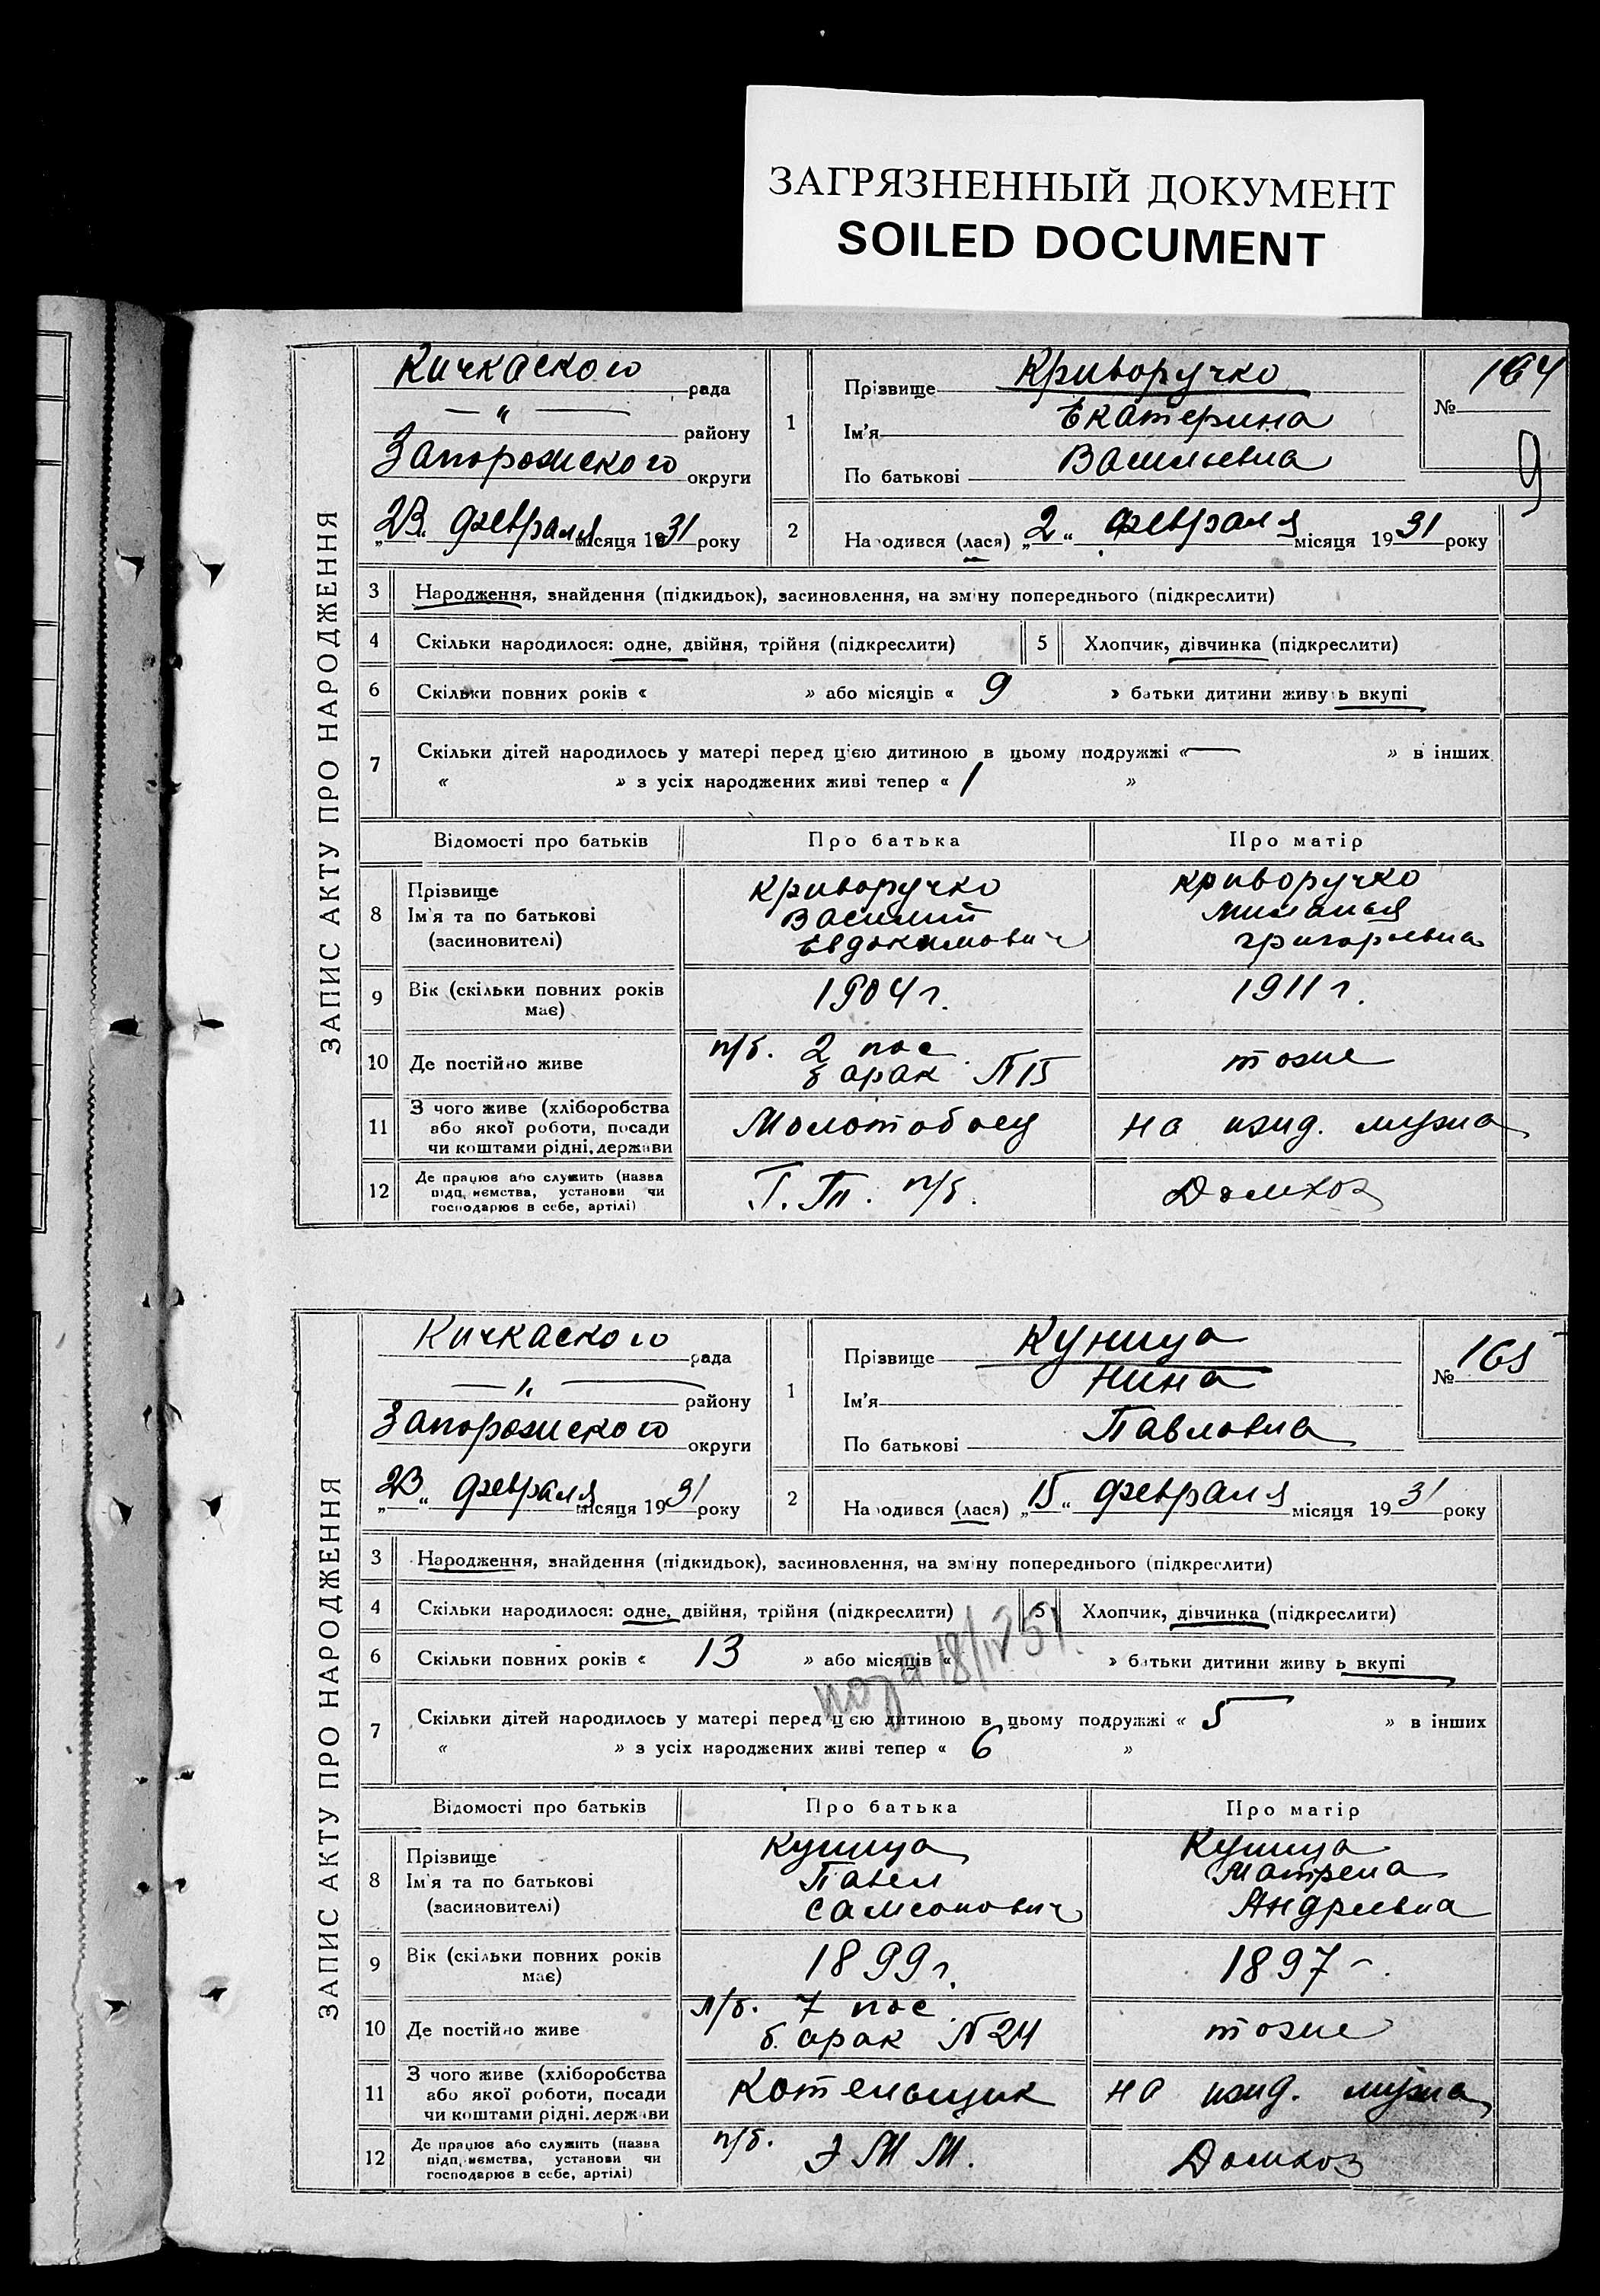 ЗАГРЯЗНЕННЫЙ ДОКУМЕНТ
SOILED DOCUMENT
ЗАПИС АКТУ ПРО НАРОДЖЕННЯ
Кичкаского рада
— " — району
Запорожского округи
„23" февраля місяця 1931 року
1 Прізвище Криворучко
Ім'я Екатерина
По батькові Васильевна
№ 164
9
2 Народився (лася) „2" февраля місяця 1931 року
3 Народження, знайдення (підкидьок), засиновлення, на зміну попереднього (підкреслити)
4 Скільки народилося: одне, двійня, трійня (підкреслити) 5 Хлопчик, дівчинка (підкреслити)
6 Скільки повних років « » або місяців « 9 » батьки дитини живуть вкупі
7 Скільки дітей народилось у матері перед цією дитиною в цьому подружжі «— » в інших
« » з усіх народжених живі тепер « 1 »
Відомості про батьків Про батька Про матір
8 Прізвище Ім'я та по батькові (засиновителі)
Криворучко Василий Евдокимович
Криворучко григорьевна
9 Вік (скільки повних років має) 1904 г. 1911 г.
10 Де постійно живе п/б. 2 пос. барак N 15 тоже
11 З чого живе (хліборобства або якої роботи, посади чи коштами рідні, держави Молотобоец на ижд. мужа
12 Де працює або служить (назва підприємства, установи чи господарює в себе, артілі) п/б. Домхоз
ЗАПИС АКТУ ПРО НАРОДЖЕННЯ
Кичкаского рада
— " — району
Запорожского округи
„23" февраля місяця 1931 року
1 Прізвище Куница
Ім'я Нина
По батькові Павловна
№ 165
2 Народився (лася) „15" февраля місяця 1931 року
3 Народження, знайдення (підкидьок), засиновлення, на зміну попереднього (підкреслити)
4 Скільки народилося: одне, двійня, трійня (підкреслити) 5 Хлопчик, дівчинка (підкреслити)
6 Скільки повних років « 13 » або місяців « » батьки дитини живуть вкупі
7 Скільки дітей народилось у матері перед цією дитиною в цьому подружжі « 5 » в інших
« » з усіх народжених живі тепер « 6 »
Відомості про батьків Про батька Про матір
8 Прізвище Ім'я та по батькові (засиновителі)
Куница Павел Самсонович
Куница Матрена Андреевна
9 Вік (скільки повних років має) 1899 г. 1897 г.
10 Де постійно живе л/б. 7 пос. барак N 24 тоже
11 З чого живе (хліборобства або якої роботи, посади чи коштами рідні, держави Котельщик на ижд. мужа
12 Де працює або служить (назва підприємства, установи чи господарює в себе, артілі) п/б. Э М М. Домхоз